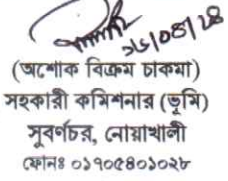 ২৬/০৪/২৪
(অশোক বিক্রম চাকমা)
সহকারী কমিশনার (ভূমি)
সুবর্ণচর, নোয়াখালী
ফোনঃ ০১৭০৫৪০১০২৮